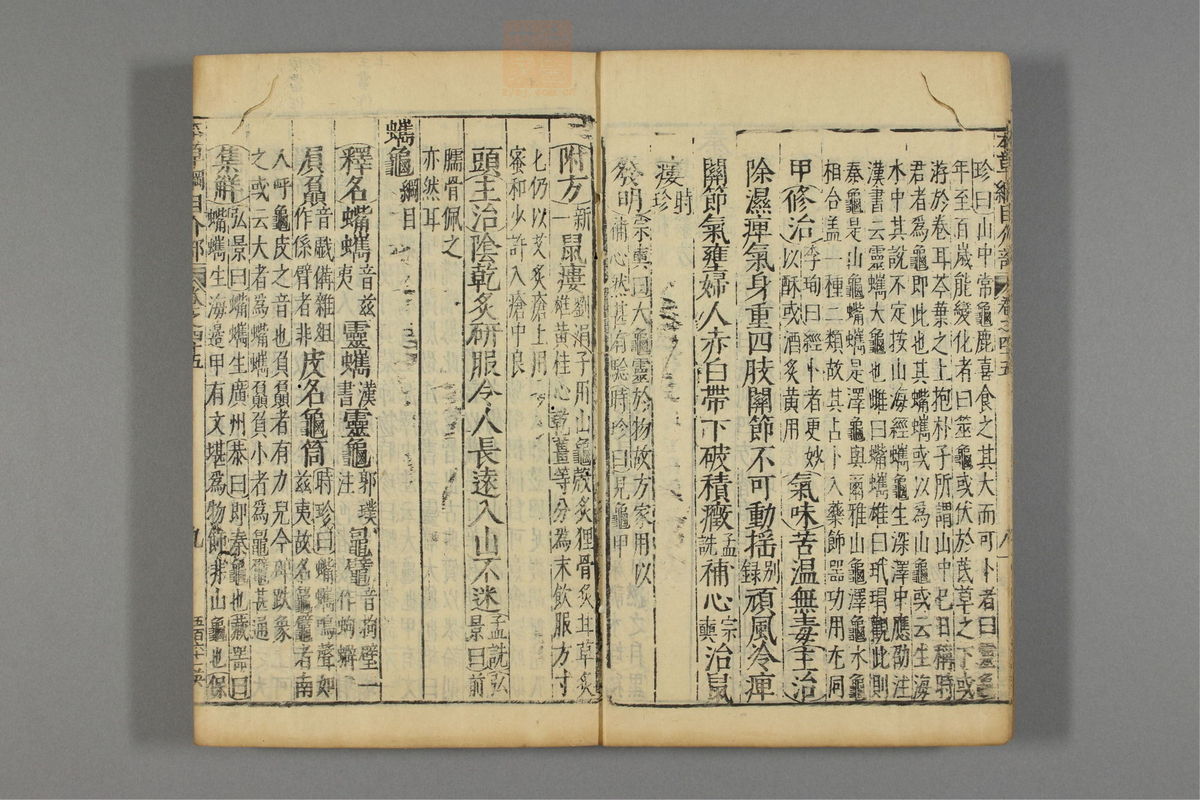 本草綱目介部 卷之四五 八
珍曰山中常龜鹿喜食之其大而可卜者曰靈龜
年至百歲能變化者曰筮龜或伏於蓍草之下或
游於卷耳芩葉之上抱朴子所謂山中巳日稱時
君者為龜即此也其蠵龜或以為山龜或云生海
水中其說不定按山海經蠵龜生深澤中應劭注
漢書云靈蠵大龜也雌曰蠵雄曰玳瑁觀此則
秦龜是山龜蠵是澤龜與爾雅山龜澤龜水龜
相合盖一種二類故其占卜入藥飾器功用尤同
甲修治李珣曰經卜者更妙以酥或酒炙黄用氣味苦温無毒主治
除濕痺氣身重四肢關節不可動摇别録頑風冷痺
關節氣壅婦人赤白帶下破積癥孟詵補心宗奭治鼠
瘻時珍
發明宗奭曰大龜靈於物故方家用以補心然甚有驗時珍曰見龜甲
附方新一鼠瘻劉涓子用山龜殼炙狸骨炙甘草炙雄黄桂心乾薑等分為末飲服方寸
匕仍以艾炙瘡上用
蜜和少許入瘡中良
頭主治陰乾炙研服令人長遠入山不迷孟詵弘景曰前
臑骨佩之
亦然耳
蠵龜綱目
釋名蠵音兹夷靈蠵漢書靈龜郭璞注鼊音拘壁作蚼蠏
贔屭音戲備雜俎作係臂者非皮名龜筒時珍曰蠵鳴聲如兹夷故名鼊者南
人呼龜皮之音也贔屭者有力皃今碑趺象
之或云大者為蠵贔屭小者為鼊甚通
集解弘景曰蠵生廣州恭曰即秦龜也藏器曰蠵生海邊甲有文堪為物飾非山龜也保
本草綱目介部 卷之四五 九